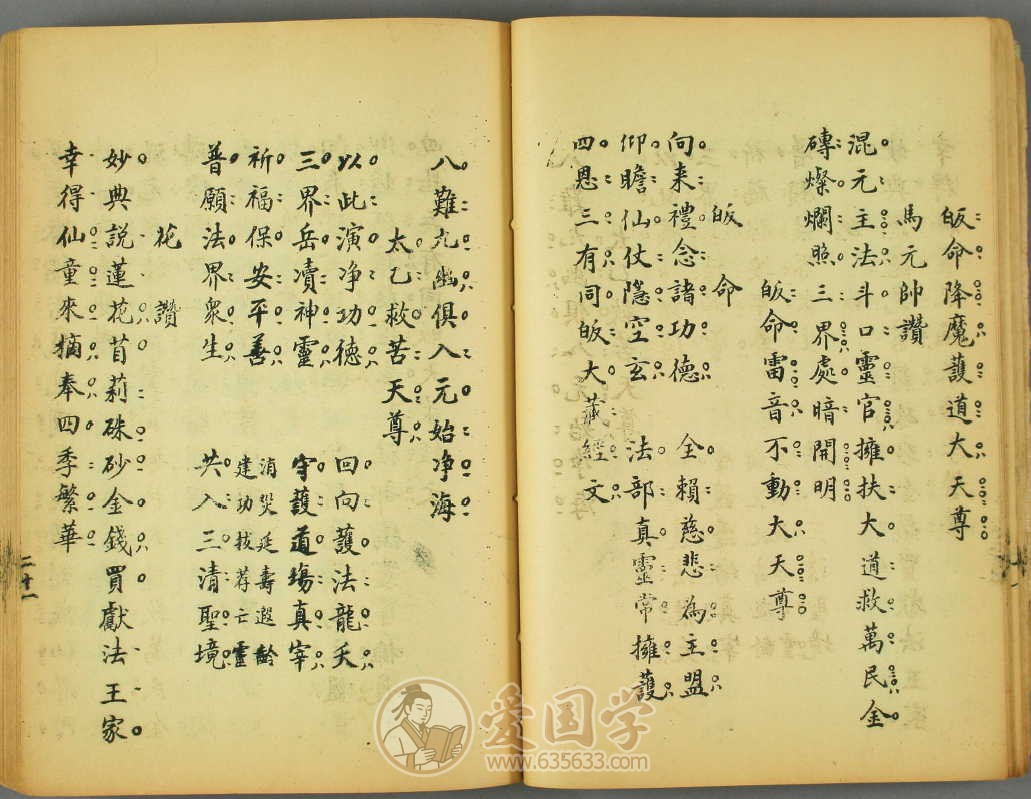 皈命降魔護道大天尊
馬元帥讚
混元主法斗口靈官擁扶大道救萬民金
磚燦爛照三界處暗開明
皈命雷音不動大天尊
皈命
向来禮念諸功德 全賴慈悲為主盟
仰瞻仙仗隱空玄 法部真靈常擁護
四恩三有同皈大藏經文
八難九幽俱入元始净海
太乙救苦天尊
以此演净功德 回向護法龍天
三界岳凟神靈 守護道塲真宰
祈福保安平善 消災延壽遐齡
建功拔荐亡靈
普願法界眾生 共入三清聖境
花讚
妙典説蓮花苜莉硃砂金錢買獻法王家
幸得仙童來摘奉四季繁華
二十一
爱国学
www.635633.com